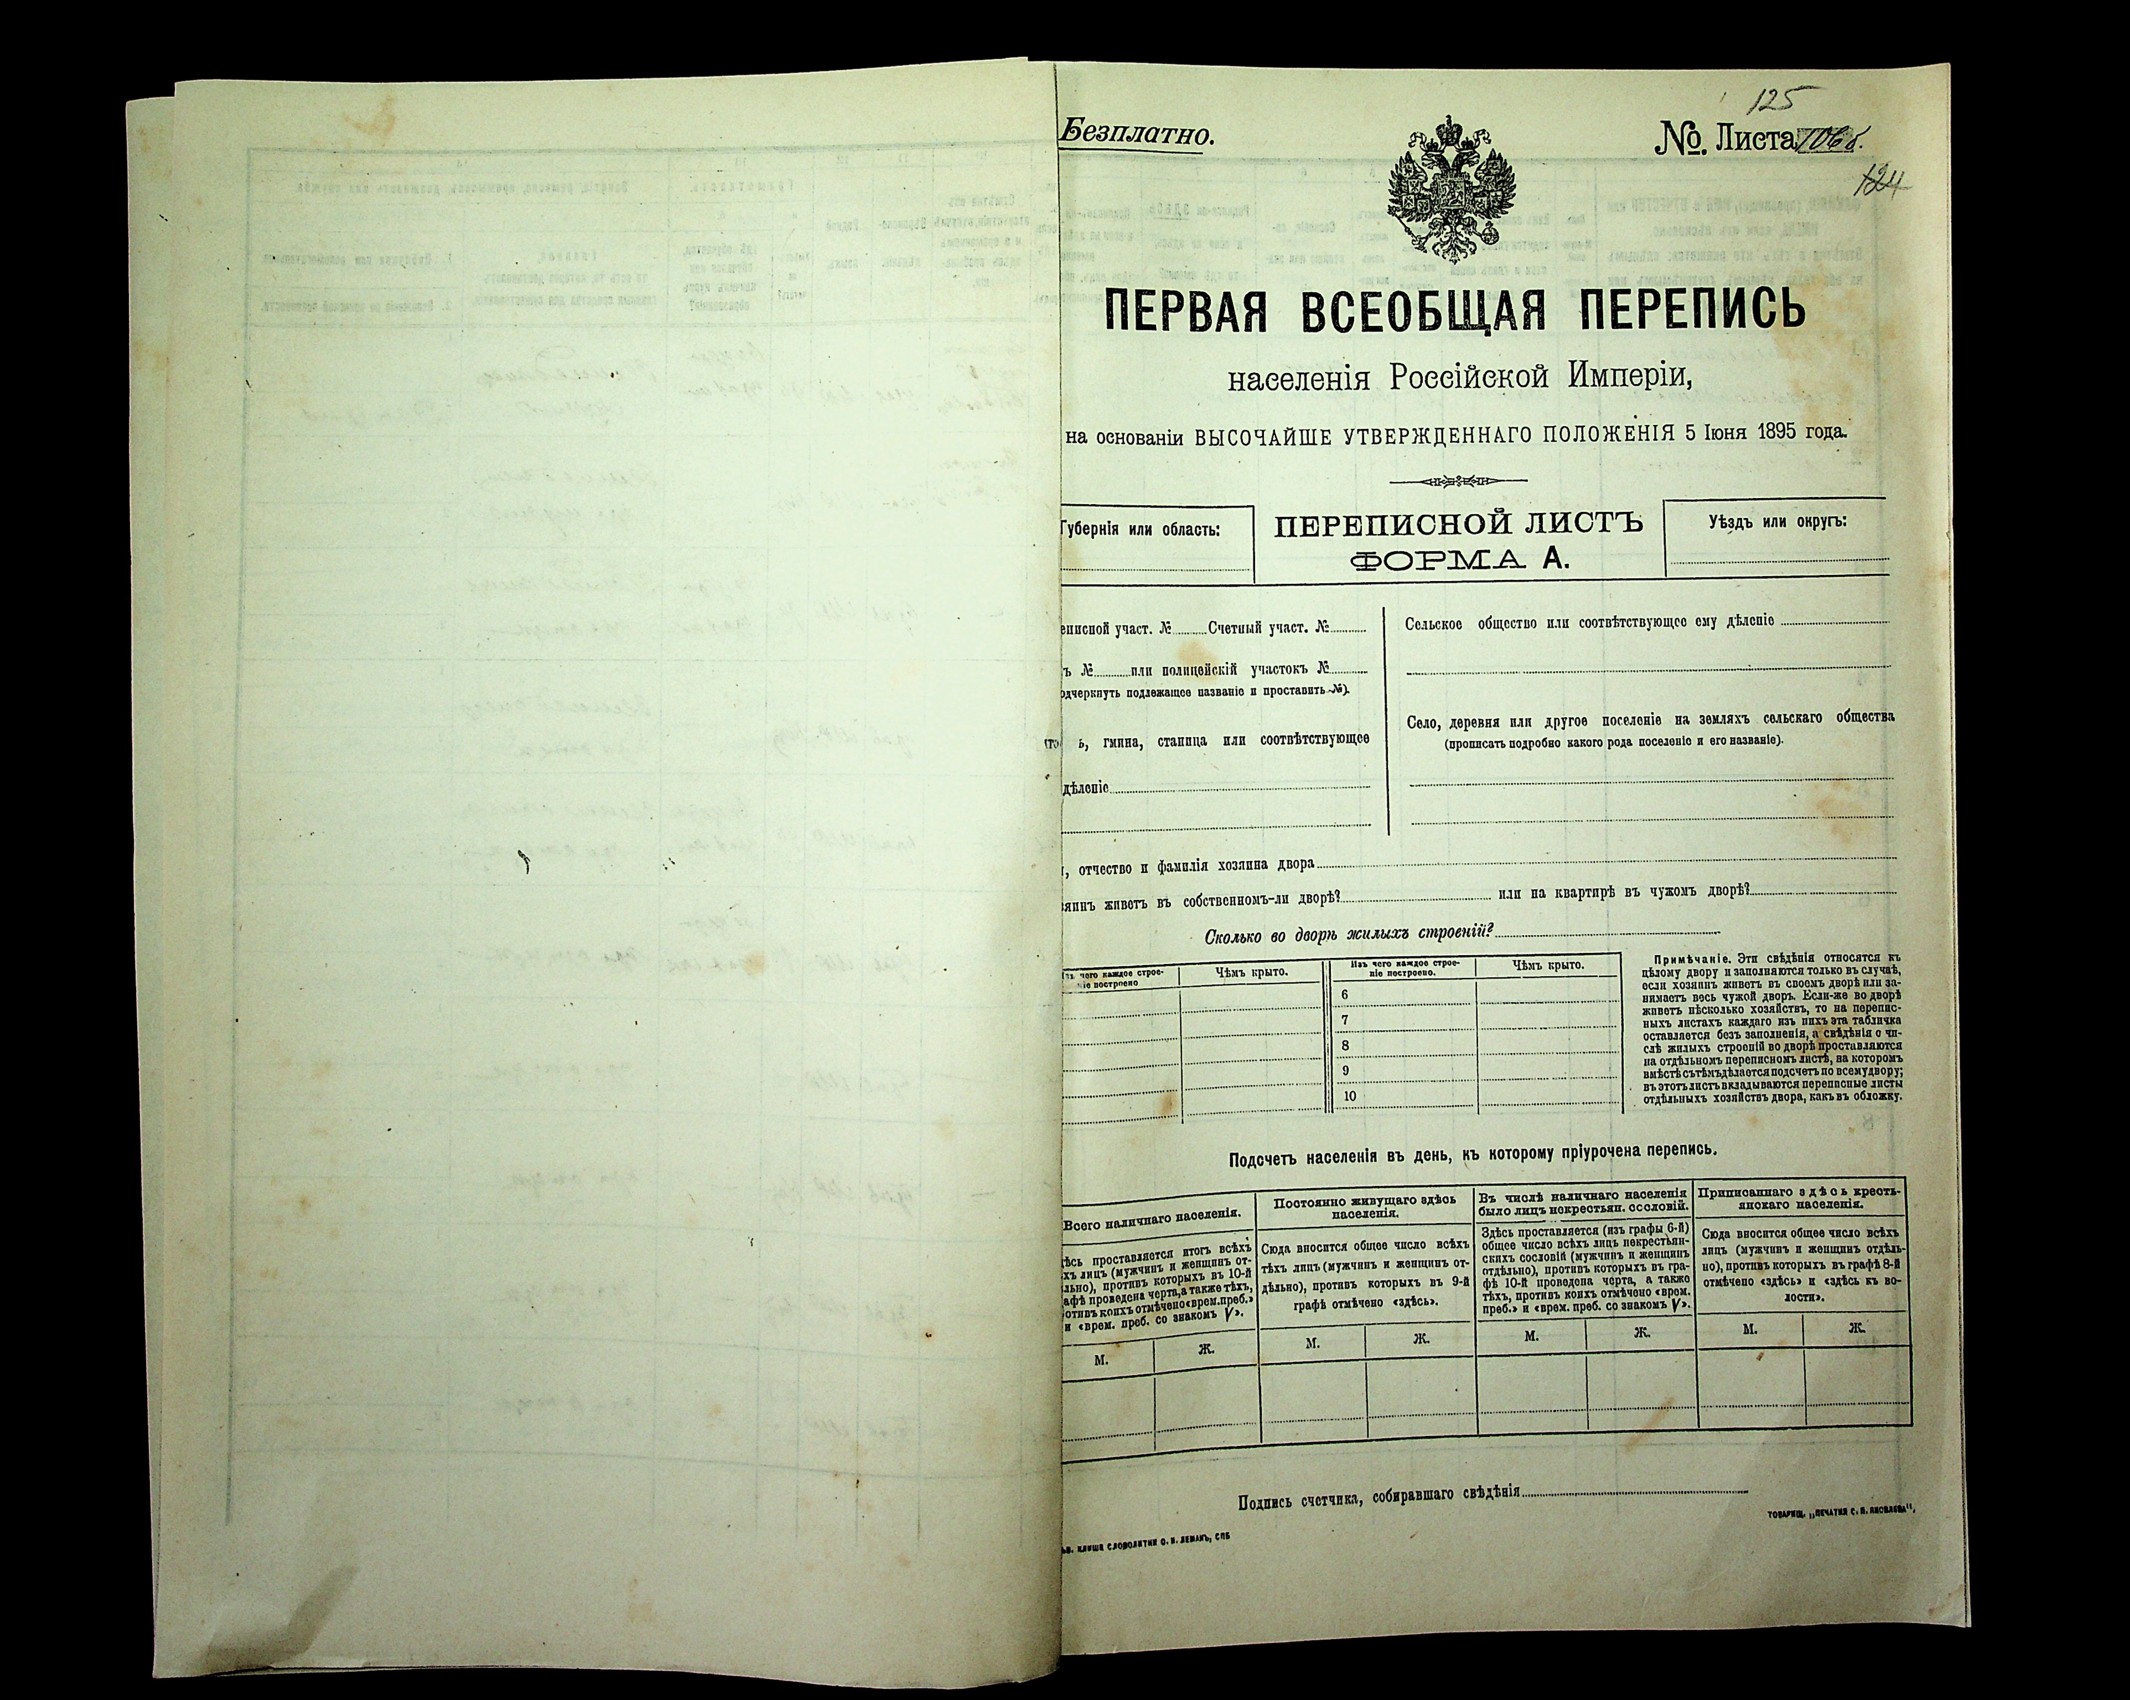 125
Безплатно.
№. Листа 106б.
124
ПЕРВАЯ ВСЕОБЩАЯ ПЕРЕПИСЬ
населенія Россійской Имперіи,
на основаніи ВЫСОЧАЙШЕ УТВЕРЖДЕННАГО ПОЛОЖЕНІЯ 5 Іюня 1895 года.
Губернія или область:
ПЕРЕПИСНОЙ ЛИСТЪ
ФОРМА А.
Уѣздъ или округъ:
еписной участ. № Счетный участ. №
ъ № или полицейскій участокъ №
одчеркнуть подлежащее названіе и проставить №).
ь, гмина, станица или соотвѣтствующее
дѣленіе
Сельское общество или соотвѣтствующее ему дѣленіе
Село, деревня или другое поселеніе на земляхъ сельскаго общества
(прописать подробно какого рода поселеніе и его названіе).
, отчество и фамилія хозяина двора
яинъ живетъ въ собственномъ-ли дворѣ? или на квартирѣ въ чужомъ дворѣ?
Сколько во дворѣ жилыхъ строеній?
Изъ чего каждое строе-
ніе построено
Чѣмъ крыто.
Изъ чего каждое строе-
ніе построено.
Чѣмъ крыто.
6
7
8
9
10
Примѣчаніе. Эти свѣдѣнія относятся къ
цѣлому двору и заполняются только въ случаѣ,
если хозяинъ живетъ въ своемъ дворѣ или за-
нимаетъ весь чужой дворъ. Если-же во дворѣ
живетъ нѣсколько хозяйствъ, то на перепис-
ныхъ листахъ каждаго изъ нихъ эта табличка
оставляется безъ заполненія, а свѣдѣнія о чи-
слѣ жилыхъ строеній во дворѣ проставляются
на отдѣльномъ переписномъ листѣ, на которомъ
вмѣстѣ съ тѣмъ дѣлается подсчетъ по всему двору;
въ этотъ листъ вкладываются переписные листы
отдѣльныхъ хозяйствъ двора, какъ въ обложку.
Подсчетъ населенія въ день, къ которому пріурочена перепись.
Всего наличнаго населенія.
ѣсь проставляется итогъ всѣхъ
хъ лицъ (мужчинъ и женщинъ от-
льно), противъ которыхъ въ 10-й
афѣ проведена черта, а также тѣхъ,
отивъ коихъ отмѣчено «врем. преб.»
и «врем. преб. со знакомъ V».
М.
Ж.
Постоянно живущаго здѣсь
населенія.
Сюда вносится общее число всѣхъ
тѣхъ лицъ (мужчинъ и женщинъ от-
дѣльно), противъ которыхъ въ 9-й
графѣ отмѣчено «здѣсь».
М.
Ж.
Въ числѣ наличнаго населенія
было лицъ некрестьян. сословій.
Здѣсь проставляется (изъ графы 6-й)
общее число всѣхъ лицъ некрестьян-
скихъ сословій (мужчинъ и женщинъ
отдѣльно), противъ которыхъ въ гра-
фѣ 10-й проведена черта, а также
тѣхъ, противъ коихъ отмѣчено «врем.
преб.» и «врем. преб. со знакомъ V».
М.
Ж.
Приписаннаго здѣсь кресть-
янскаго населенія.
Сюда вносится общее число всѣхъ
лицъ (мужчинъ и женщинъ отдѣль-
но), противъ которыхъ въ графѣ 8-й
отмѣчено «здѣсь» и «здѣсь къ во-
лости».
М.
Ж.
Подпись счетчика, собиравшаго свѣдѣнія
КЛИШЕ СЛОВОЛИТНИ О. И. ЛЕМАНЪ, СПБ
ТОВАРИЩ. „ПЕЧАТНЯ С. П. ЯКОВЛЕВА“,